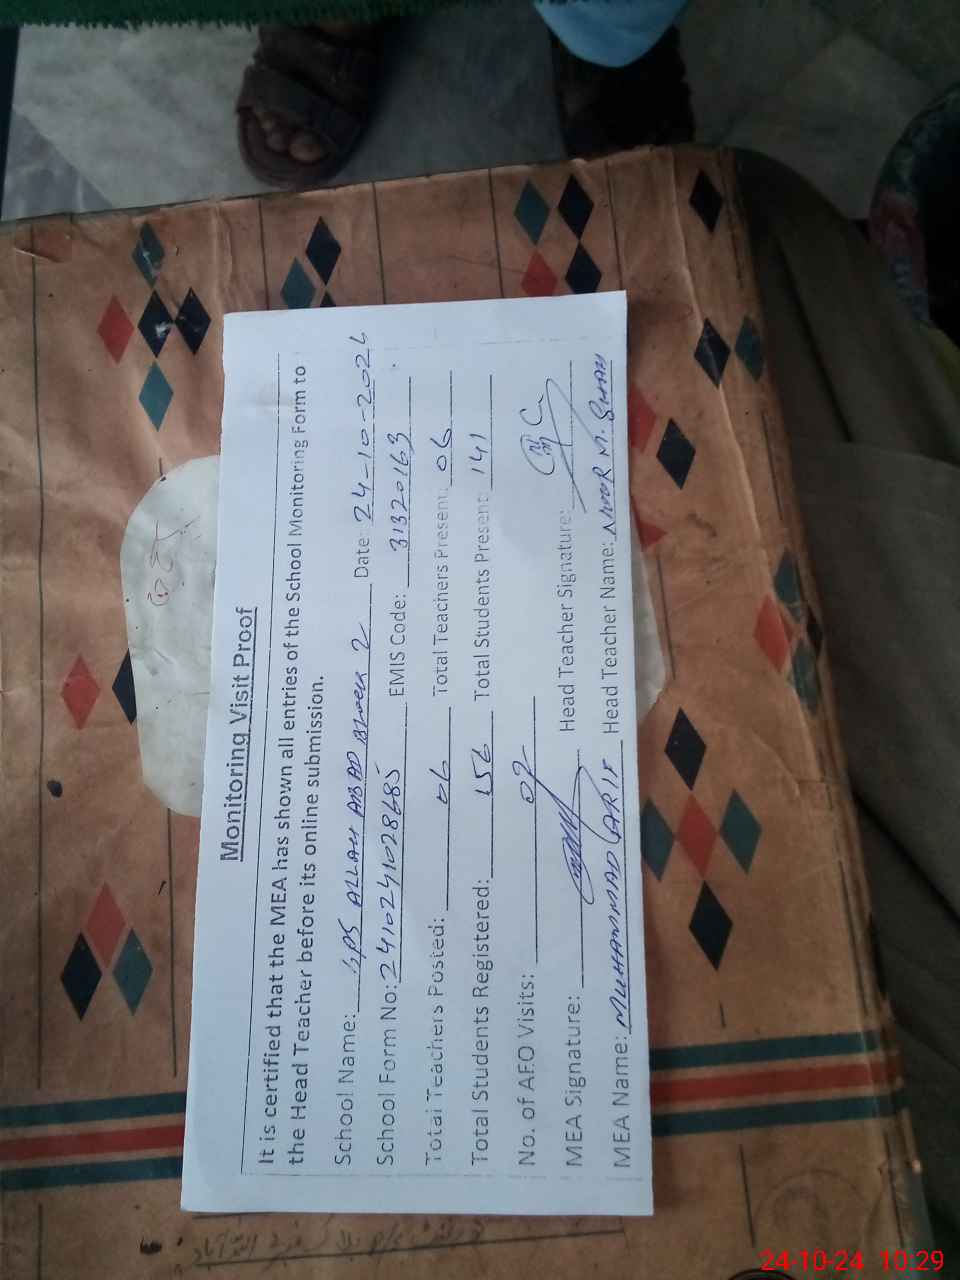 Monitoring Visit Proof
It is certified that the MEA has shown all entries of the School Monitoring Form to
the Head Teacher before its online submission.
School Name: GPS ALLAH ABAD Block 2 Date: 24-10-2024
School Form No: 241024102868 5 EMIS Code: 31320163
Total Teachers Posted: 06 Total Teachers Present: 06
Total Students Registered: 156 Total Students Present: 141
No. of AEO Visits: 02
MEA Signature: Head Teacher Signature:
MEA Name: MUHAMMAD Head Teacher Name: NOOR M. SHAH
24-10-24 10:29